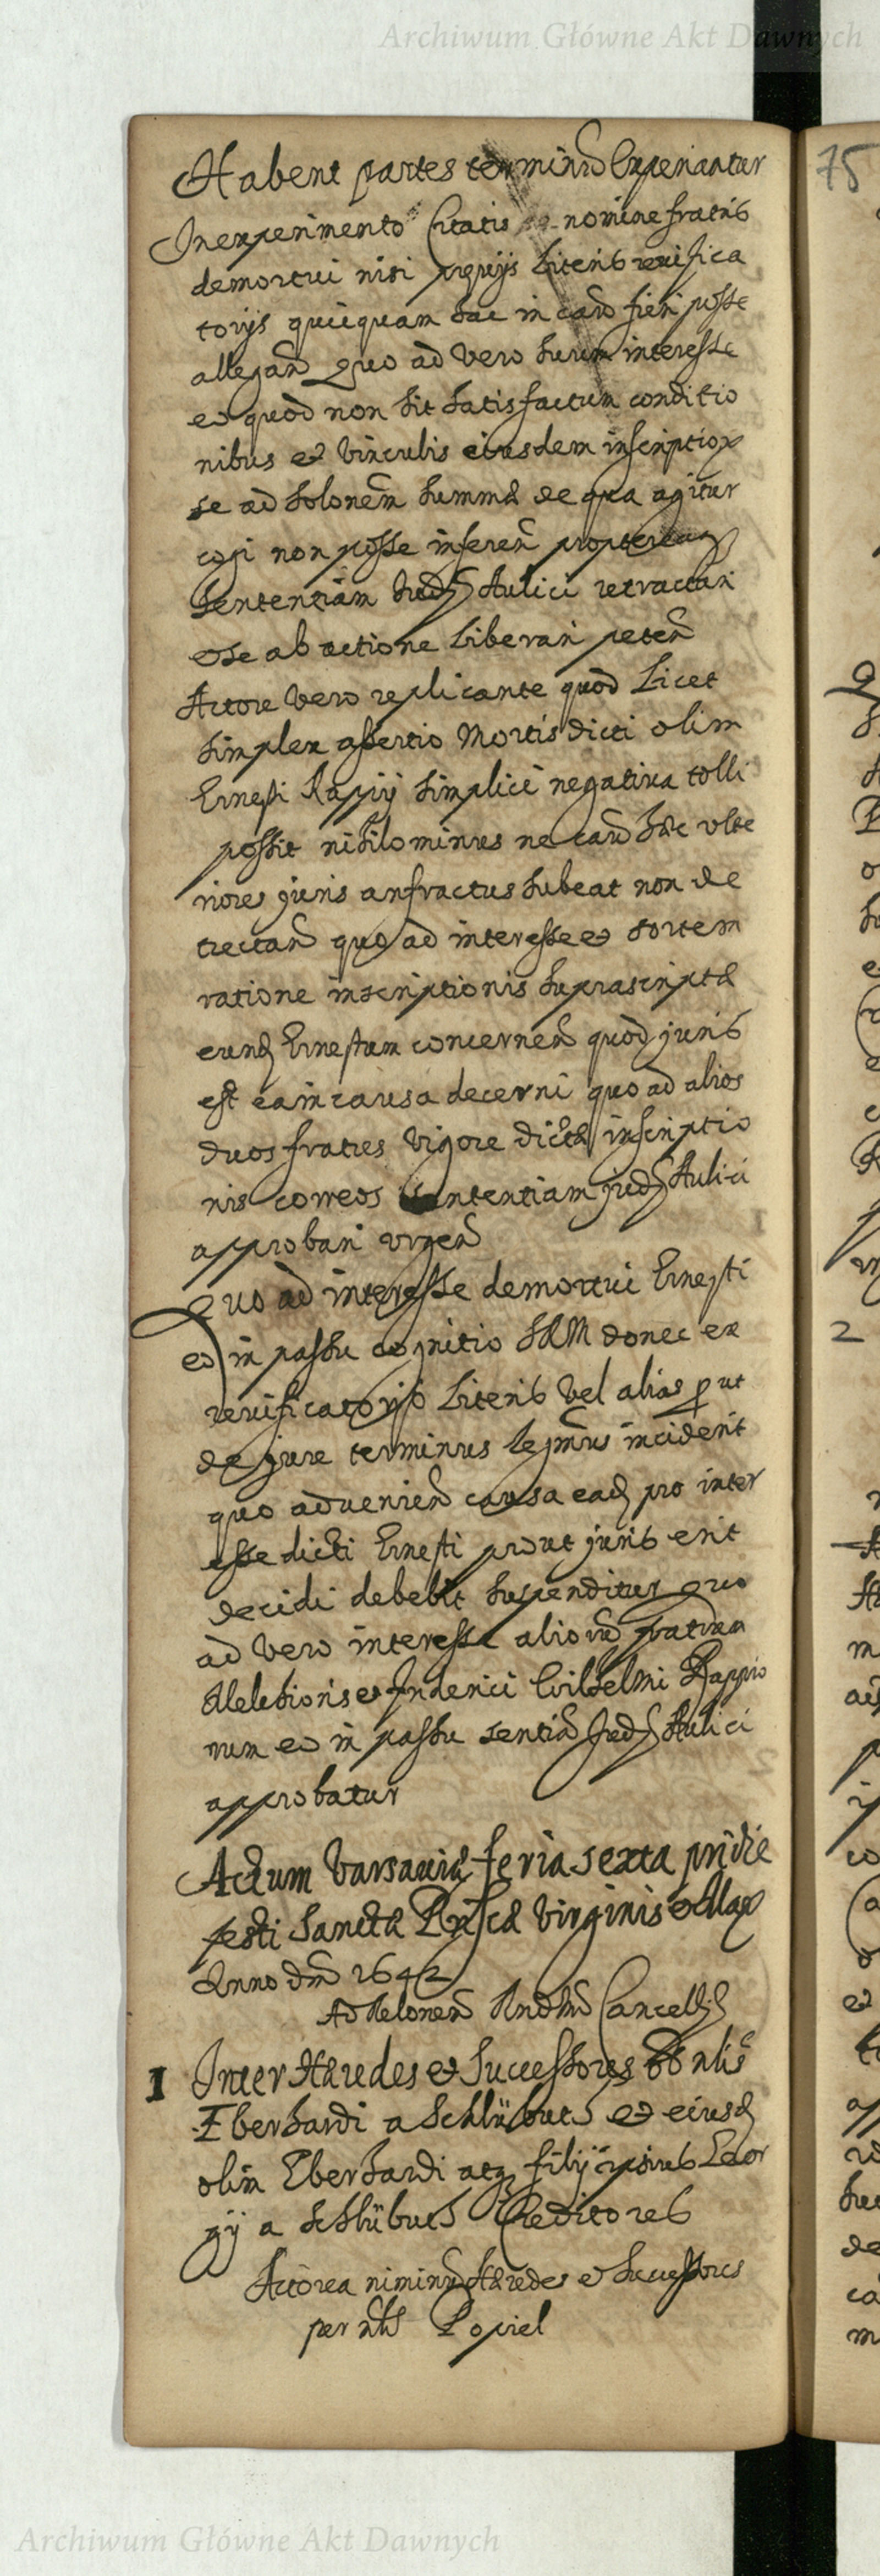 Archiwum Główne Akt Dawnych
Habent partes terminũ Experiantur
75
In experimento Citatis nomine fratris
demortui nisi Literis revifica
torijs quicquam hac in cauã fieri posse
allegan̄ Quo ad vero suum interesse
eo quod non sit satisfactum conditio
nibus et vinculis eiusdem inscription
se ad solonem summæ de qua agitur
cogi non posse inferen̄ propterea
sententiam Jud Aulici retractari
ese ab actione Liberari peten̄
Actore vero replicante quod Licet
simplex assertio Mortis dicti olim
Ernesti Rappij simplici negativa tolli
possit nihilominus ne cauã hæc ulte
riores juris anfractus subeat non de
trectan̄ quo ad interesse et sortem
ratione inscriptionis suprascriptæ
eund Ernestum concernen̄ quod juris
est ea in causa decerni quo ad alios
duos fratres vigore dictæ inscriptio
nis correos sententiam jud Aulici
approbari urgen̄
Quo ad interesse demortui Ernesti
eo in passu cognitio SRM donec ex
revificatorijs Literis vel alias put
de jure terminus legmus inciderit
quo advenien̄ causa ead pro inter
esse dicti Ernesti prout juris erit
decidi debebit suspenditur quo
ad vero interesse aliorũ fratrum
Melchioris et Friderici Wilhelmi Rappio
rum eo in passu sentiã Jud Aulici
approbatur
Actum Varsaviæ feria sexta pridie
festi Sanctæ Priscæ Virginis et Mar
Anno dni 1642
Ad Relonem Rndm̄ Cancell
1 Inter Hæredes et Successores
Eberhardi a Schlübut et eiusd
olim Eberhardi atq filij ipsius Geor
gij a Schlübut Creditores
Actorea nimirũ Hæredes et Successores
per Popiel
2
Archiwum Główne Akt Dawnych